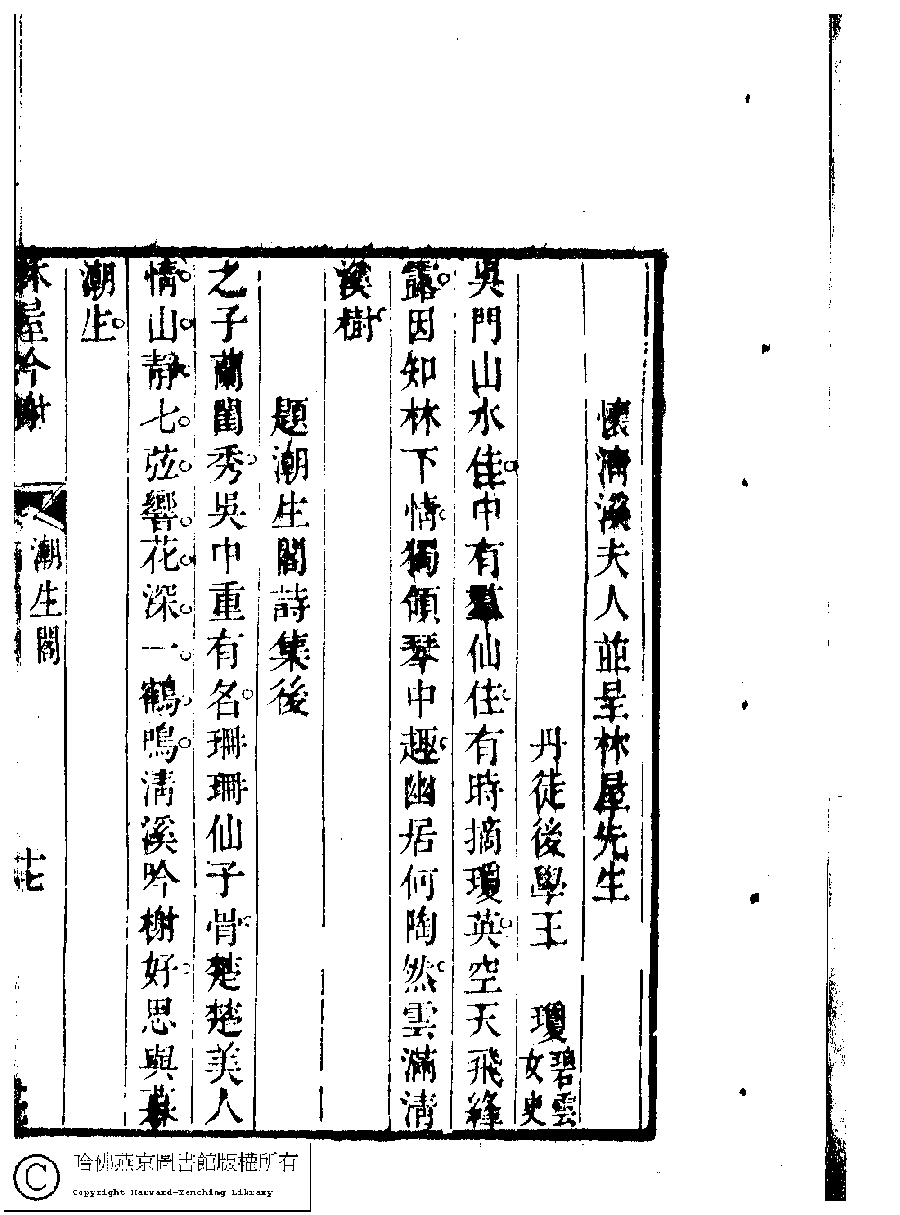 懷清溪夫人並呈林屋先生
丹徒後學王　瓊碧雲女史
吳門山水佳中有仙住有時摘瓊英空天飛絳
露因知林下情獨領琴中趣幽居何陶然雲滿清
溪樹
題潮生閣詩集後
之子蘭閨秀吳中重有名珊珊仙子骨楚楚美人
情山靜七弦響花深一鶴鳴清溪吟榭好思與暮
潮生
林屋吟榭
潮生閣
十七
哈佛燕京圖書館版權所有
Copyright Harvard-Yenching Library